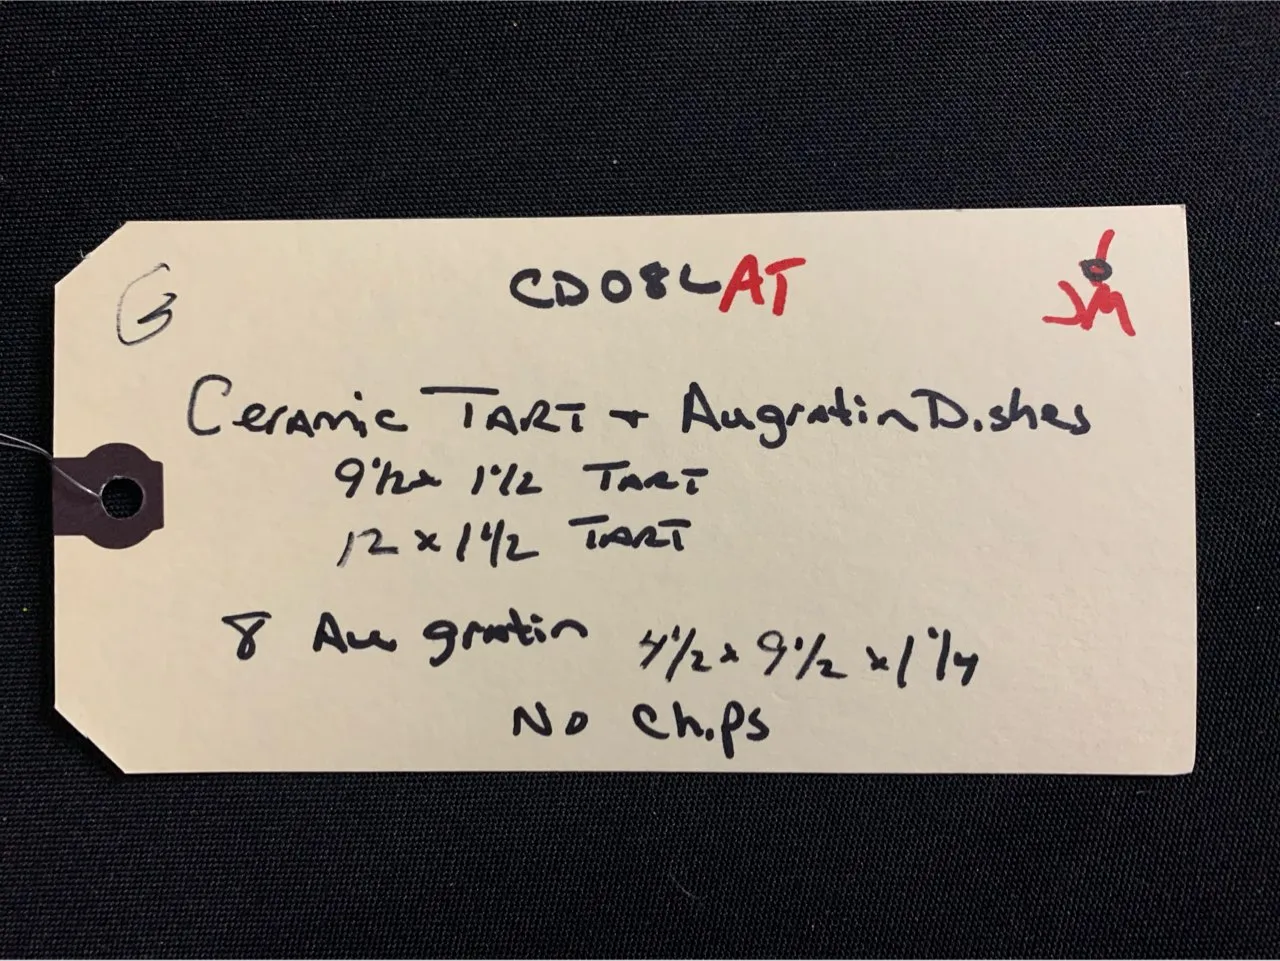 3 CD08LAT JM
Ceramic TART + Augratin Dishes
9 1/2 x 1 1/2 TART
12 x 1 1/2 TART
8 Au gratin 4 1/2 x 9 1/2 x 1 1/4
No Chips